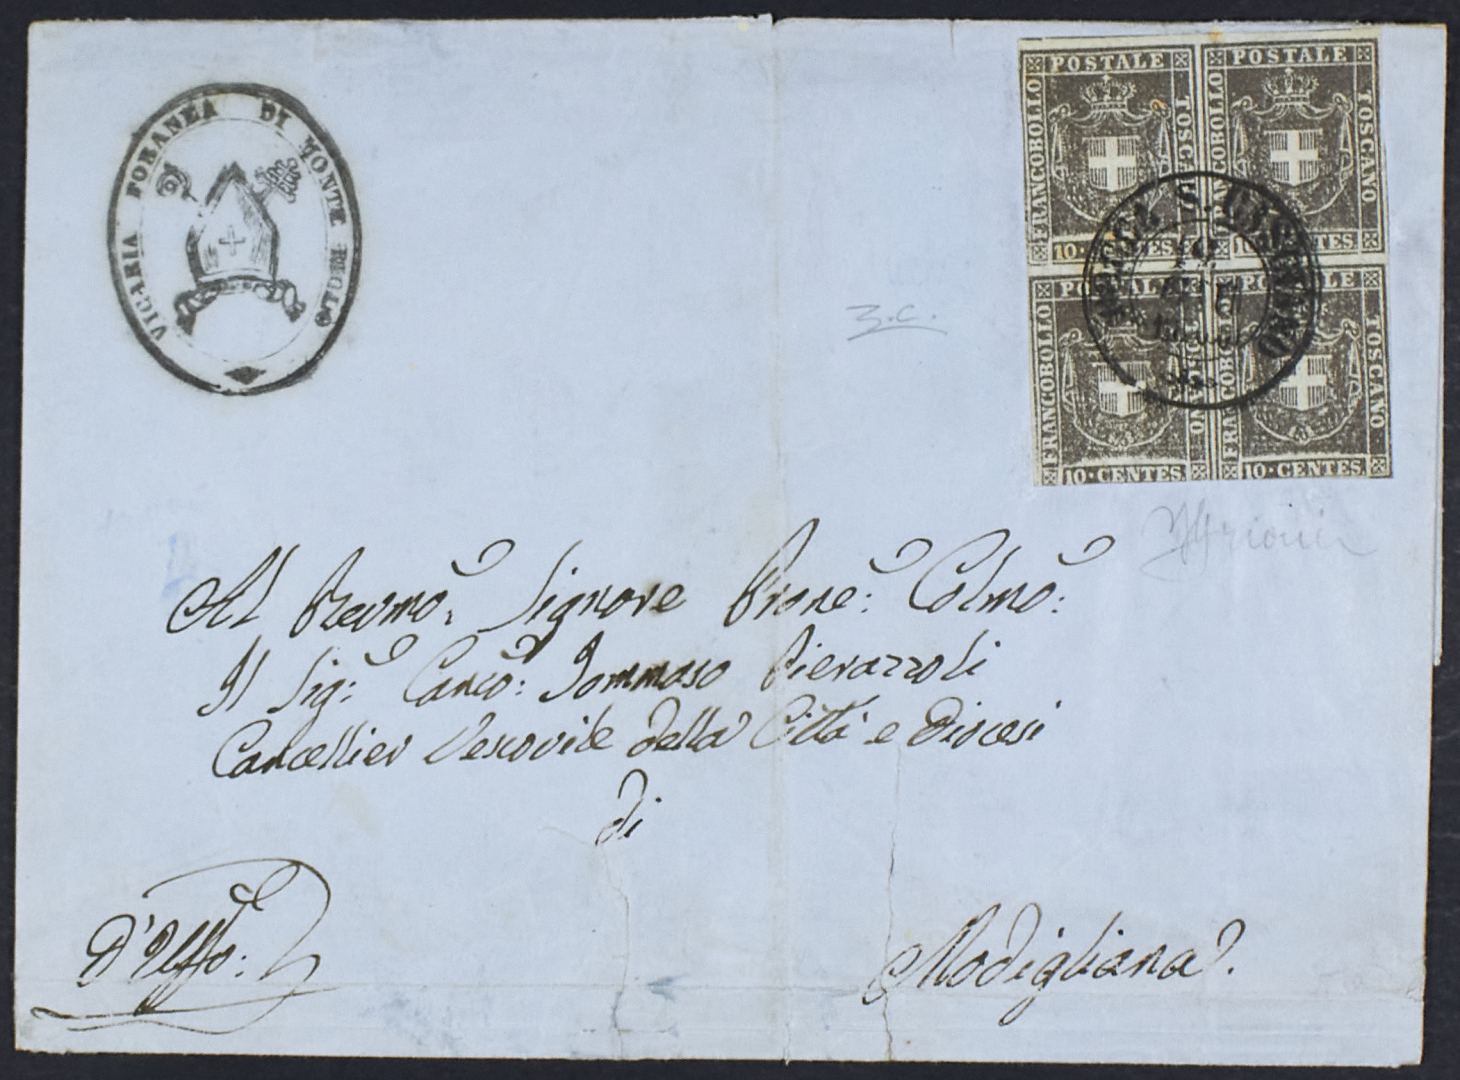 VICARIA FORANEA DI MONTE REGIO
POSTALE POSTALE
FRANCOBOLLO TOSCANO FRANCOBOLLO TOSCANO
10·CENTES. 10·CENTES.
ROCCA S. CASCIANO
POSTALE POSTALE
FRANCOBOLLO TOSCANO FRANCOBOLLO TOSCANO
10·CENTES. 10·CENTES.
Al Revmo. Signore Prone: Colmo:
Il Sig: Canco: Tommaso Pierazzoli
Cancellier Vescovile della Città e Diocesi
di
D'Uffo:
Modigliana.